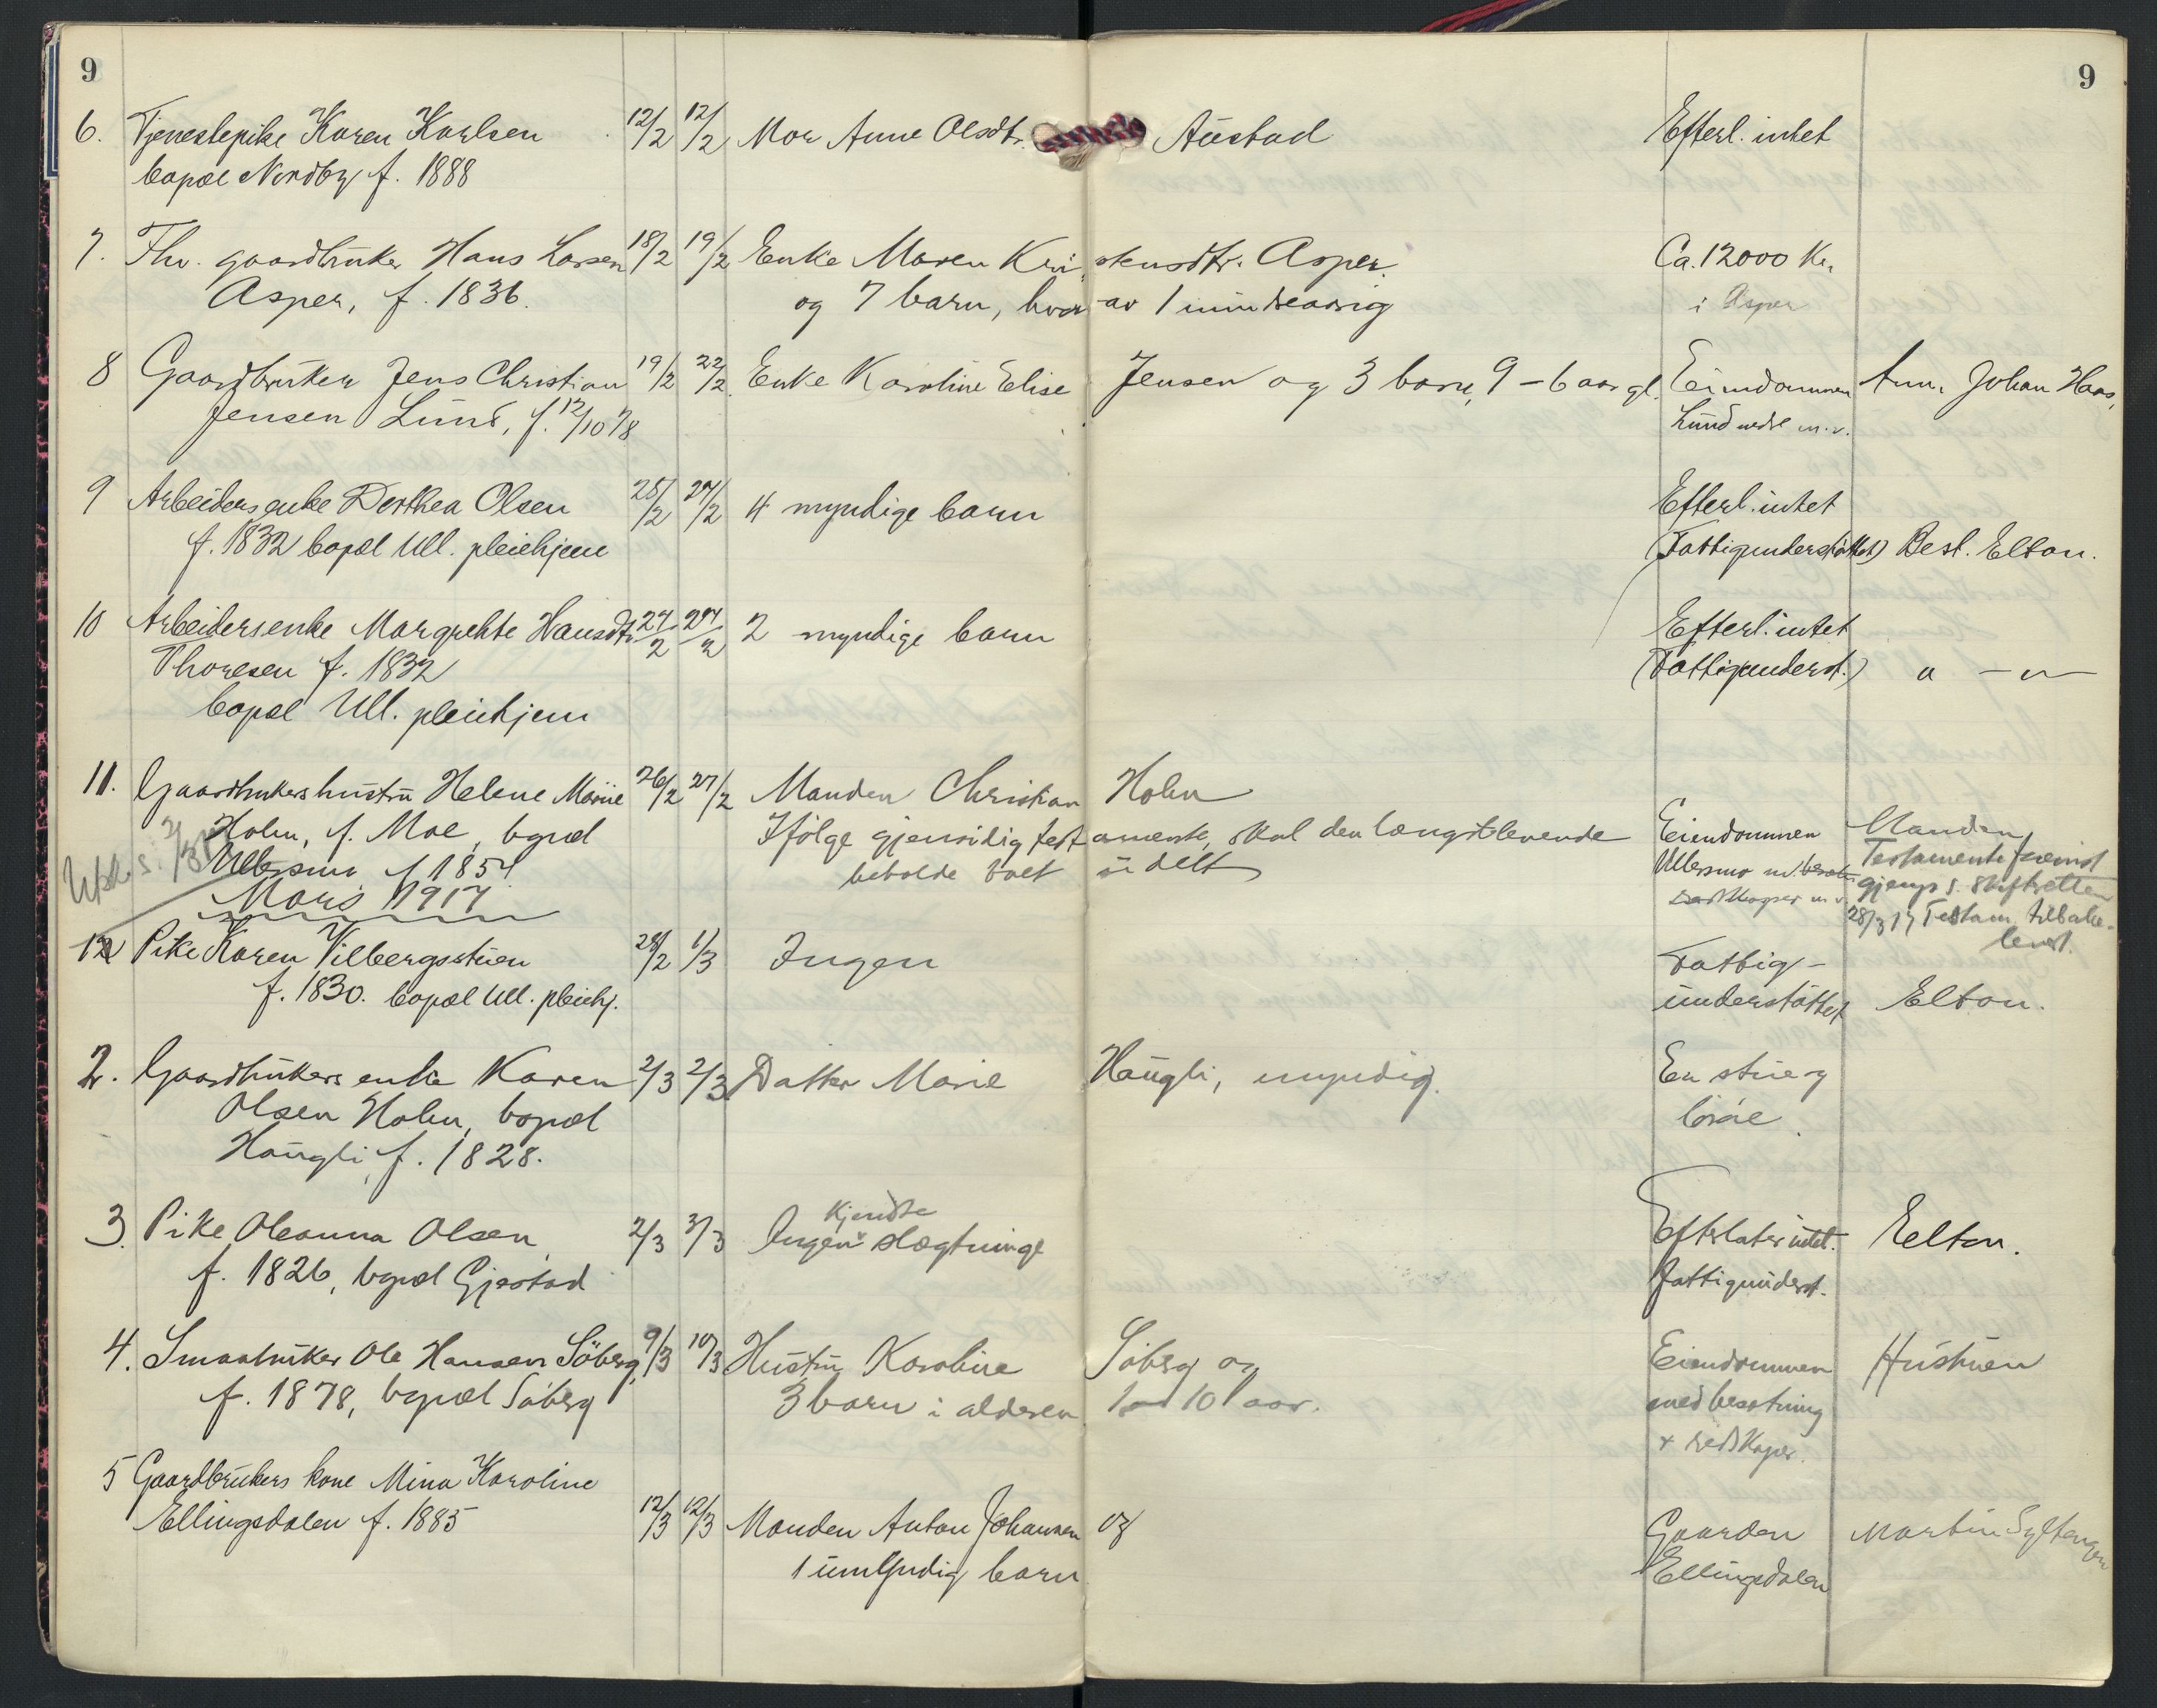 9 9
6. Tjenestepike Karen Karlsen 12/2 12/2 Mor Anne Olsdtr. Austad Efterl. intet
bopæl Nordby f. 1888
7. Fhv. gaardbruker Hans Larsen 18/2 19/2 Enke Maren Kristensdtr. Asper. Ca. 12000 Kr.
Asper, f. 1836. og 7 barn, hvorav 1 mindreaarig i Asper
8 Gaardbruker Jens Christian 19/2 22/2 Enke Karoline Elise Jensen og 3 barn, 9 – 6 aar gl. Eiendommen Anm. Johan Haas,
Jensen Lund, f. 12/10 78 Lund nedre m.v.
9 Arbeidersenke Dorthea Olsen 25/2 27/2 4 myndige barn Efterl. intet
f. 1832 bopæl Ull. pleiehjem (Fattigunderstøttet) Best. Elton.
10 Arbeidersenke Margrehte Hansdtr 27/2 27/2 2 myndige barn Efterl. intet
Thoresen f. 1832 (Fattigunderst.) " – " –
bopæl Ull. pleiehjem
11. Gaardbrukers hustru Helene Marie 26/2 27/2 Manden Christian Holm
Holm, f. Moe, bopæl Ifølge gjensidig testamente, skal den længstlevende Eiendommen Manden
Ullersmo f 1854. beholde boet udelt Ullersmo m. besætn. Testamente
redskaper m v gjenp s. skifteretten
Mars 1917 28/3 17 Testam. tilbake-
levert.
12 Pike Karen Vilbergsstuen 28/2 1/3 Ingen Fattig-
f. 1830. bopæl Ull. pleiehj. understøttet Elton.
2. Gaardbrukers enke Karen 2/3 2/3 Datter Marie Haugli, myndig. En stue og
Olsen Holm, bopæl løsøre.
Haugli, f. 1828.
3. Pike Oleanna Olsen 2/3 3/3 Ingen kjendte slægtninge Efterlater intet. Elton.
f. 1826, bopæl Gjestad Fattigunderst.
4. Smaabruker Ole Hansen Søberg, 9/3 10/3 Hustru Karoline Søberg og Eiendommen Hustruen
f. 1878, bopæl Søberg 3 barn i alderen 1 – 10 aar. med besætning
+ redskaper.
5 Gaardbrukers kone Mina Karoline
Ellingsdalen f. 1885 12/3 12/3 Manden Anton Johansen og Gaarden Martin
1 umyndig barn Ellingsdalen